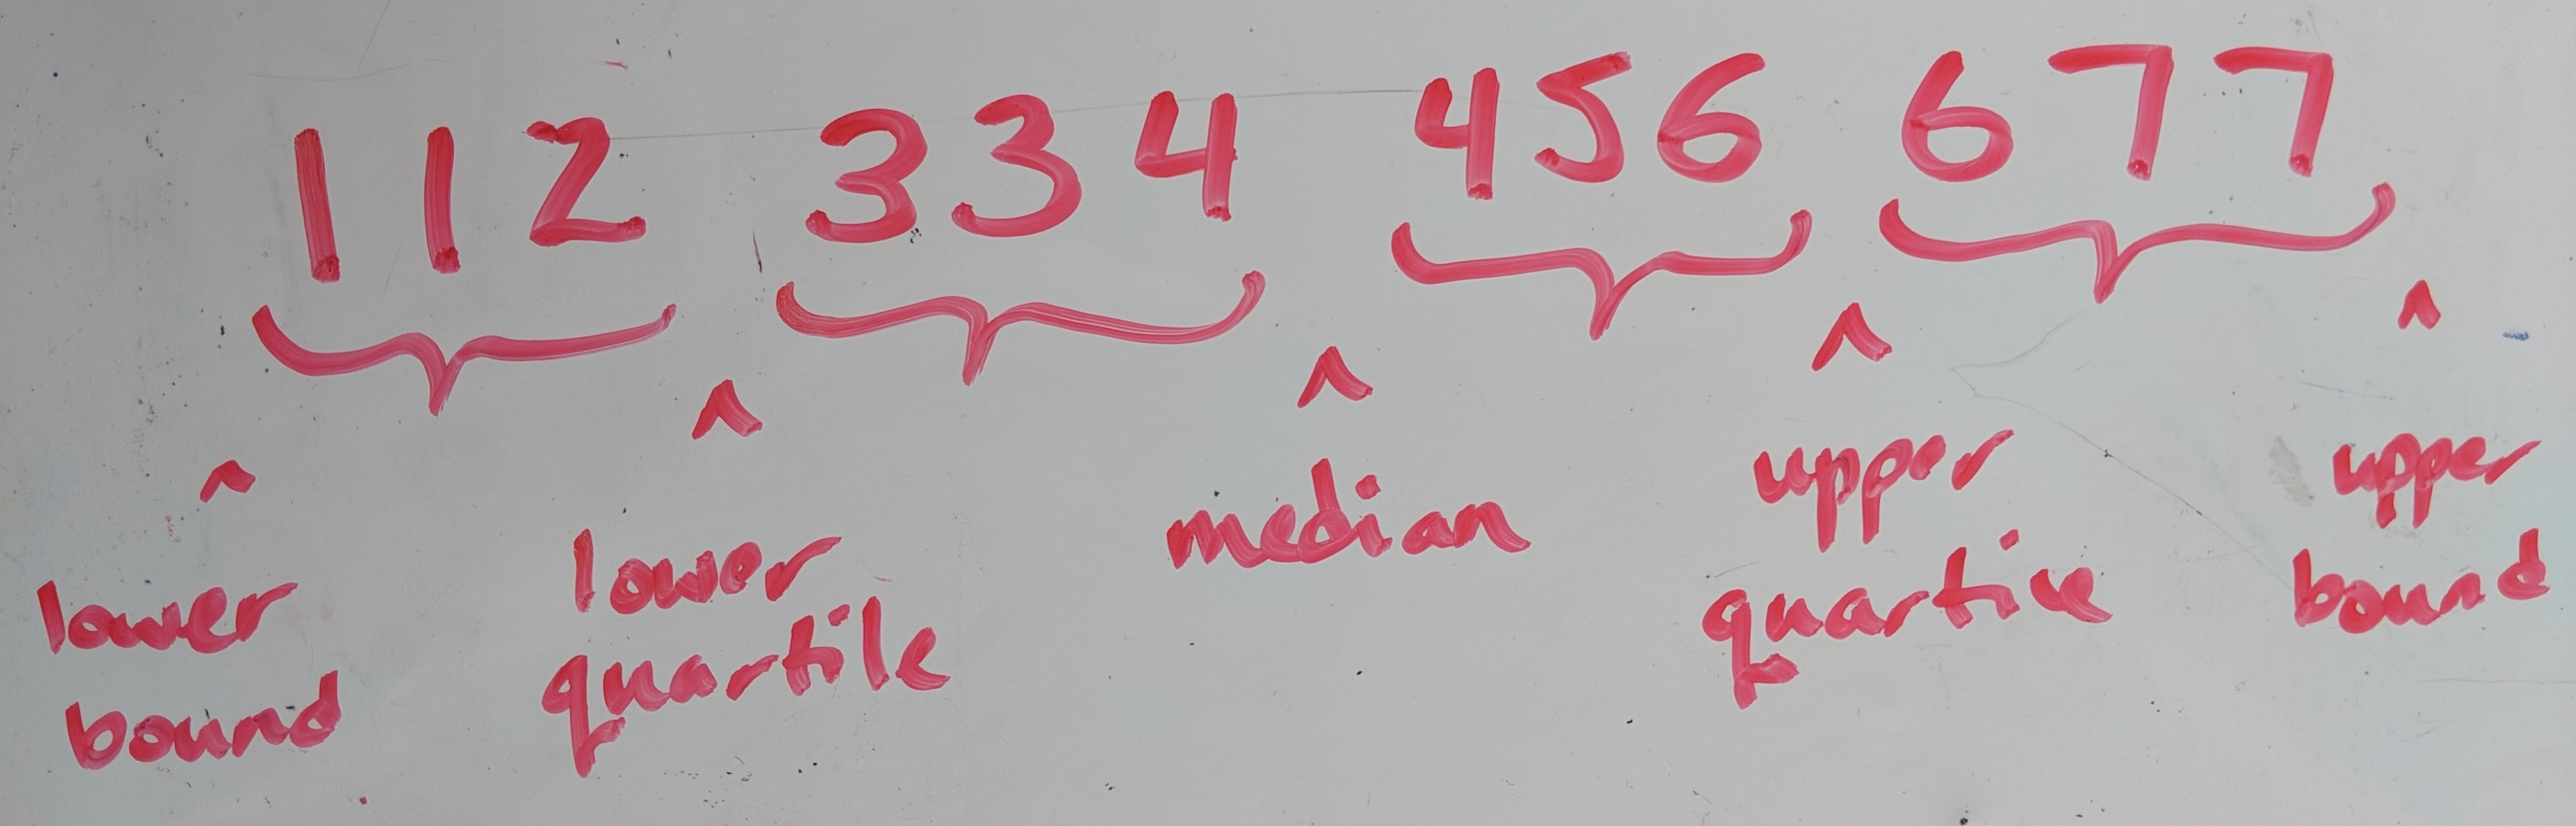 1 1 2 3 3 4 4 5 6 6 7 7
^ ^ ^ ^ ^
lower bound
lower quartile
median
upper quartile
upper bound